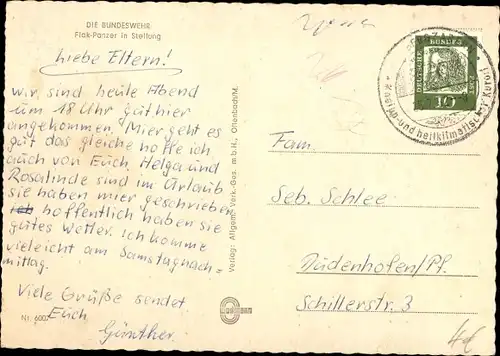 DIE BUNDESWEHR
Flak-Panzer in Stellung
Liebe Eltern!
Wir sind heute Abend
um 18 Uhr gut hier
angekommen. Mier geht es
gut das gleiche hoffe ich
auch von Euch. Helga und
Rosalinde sind im Urlaub
sie haben mier geschrieben
ich hoffentlich haben sie
gutes Wetter. Ich komme
vieleicht am Samstagnach=
mittag.
Viele Grüße sendet
Euch
Günther.
Nr. 600
Verlag: Allgem. Verk.-Ges. m.b.H., Offenbach/M.
DEUTSCHE BUNDESPOST
10
Kneipp- und heilklimatischer Kurort
Fam.
Seb. Schlee
Dudenhofen/Pf.
Schillerstr. 3
4€